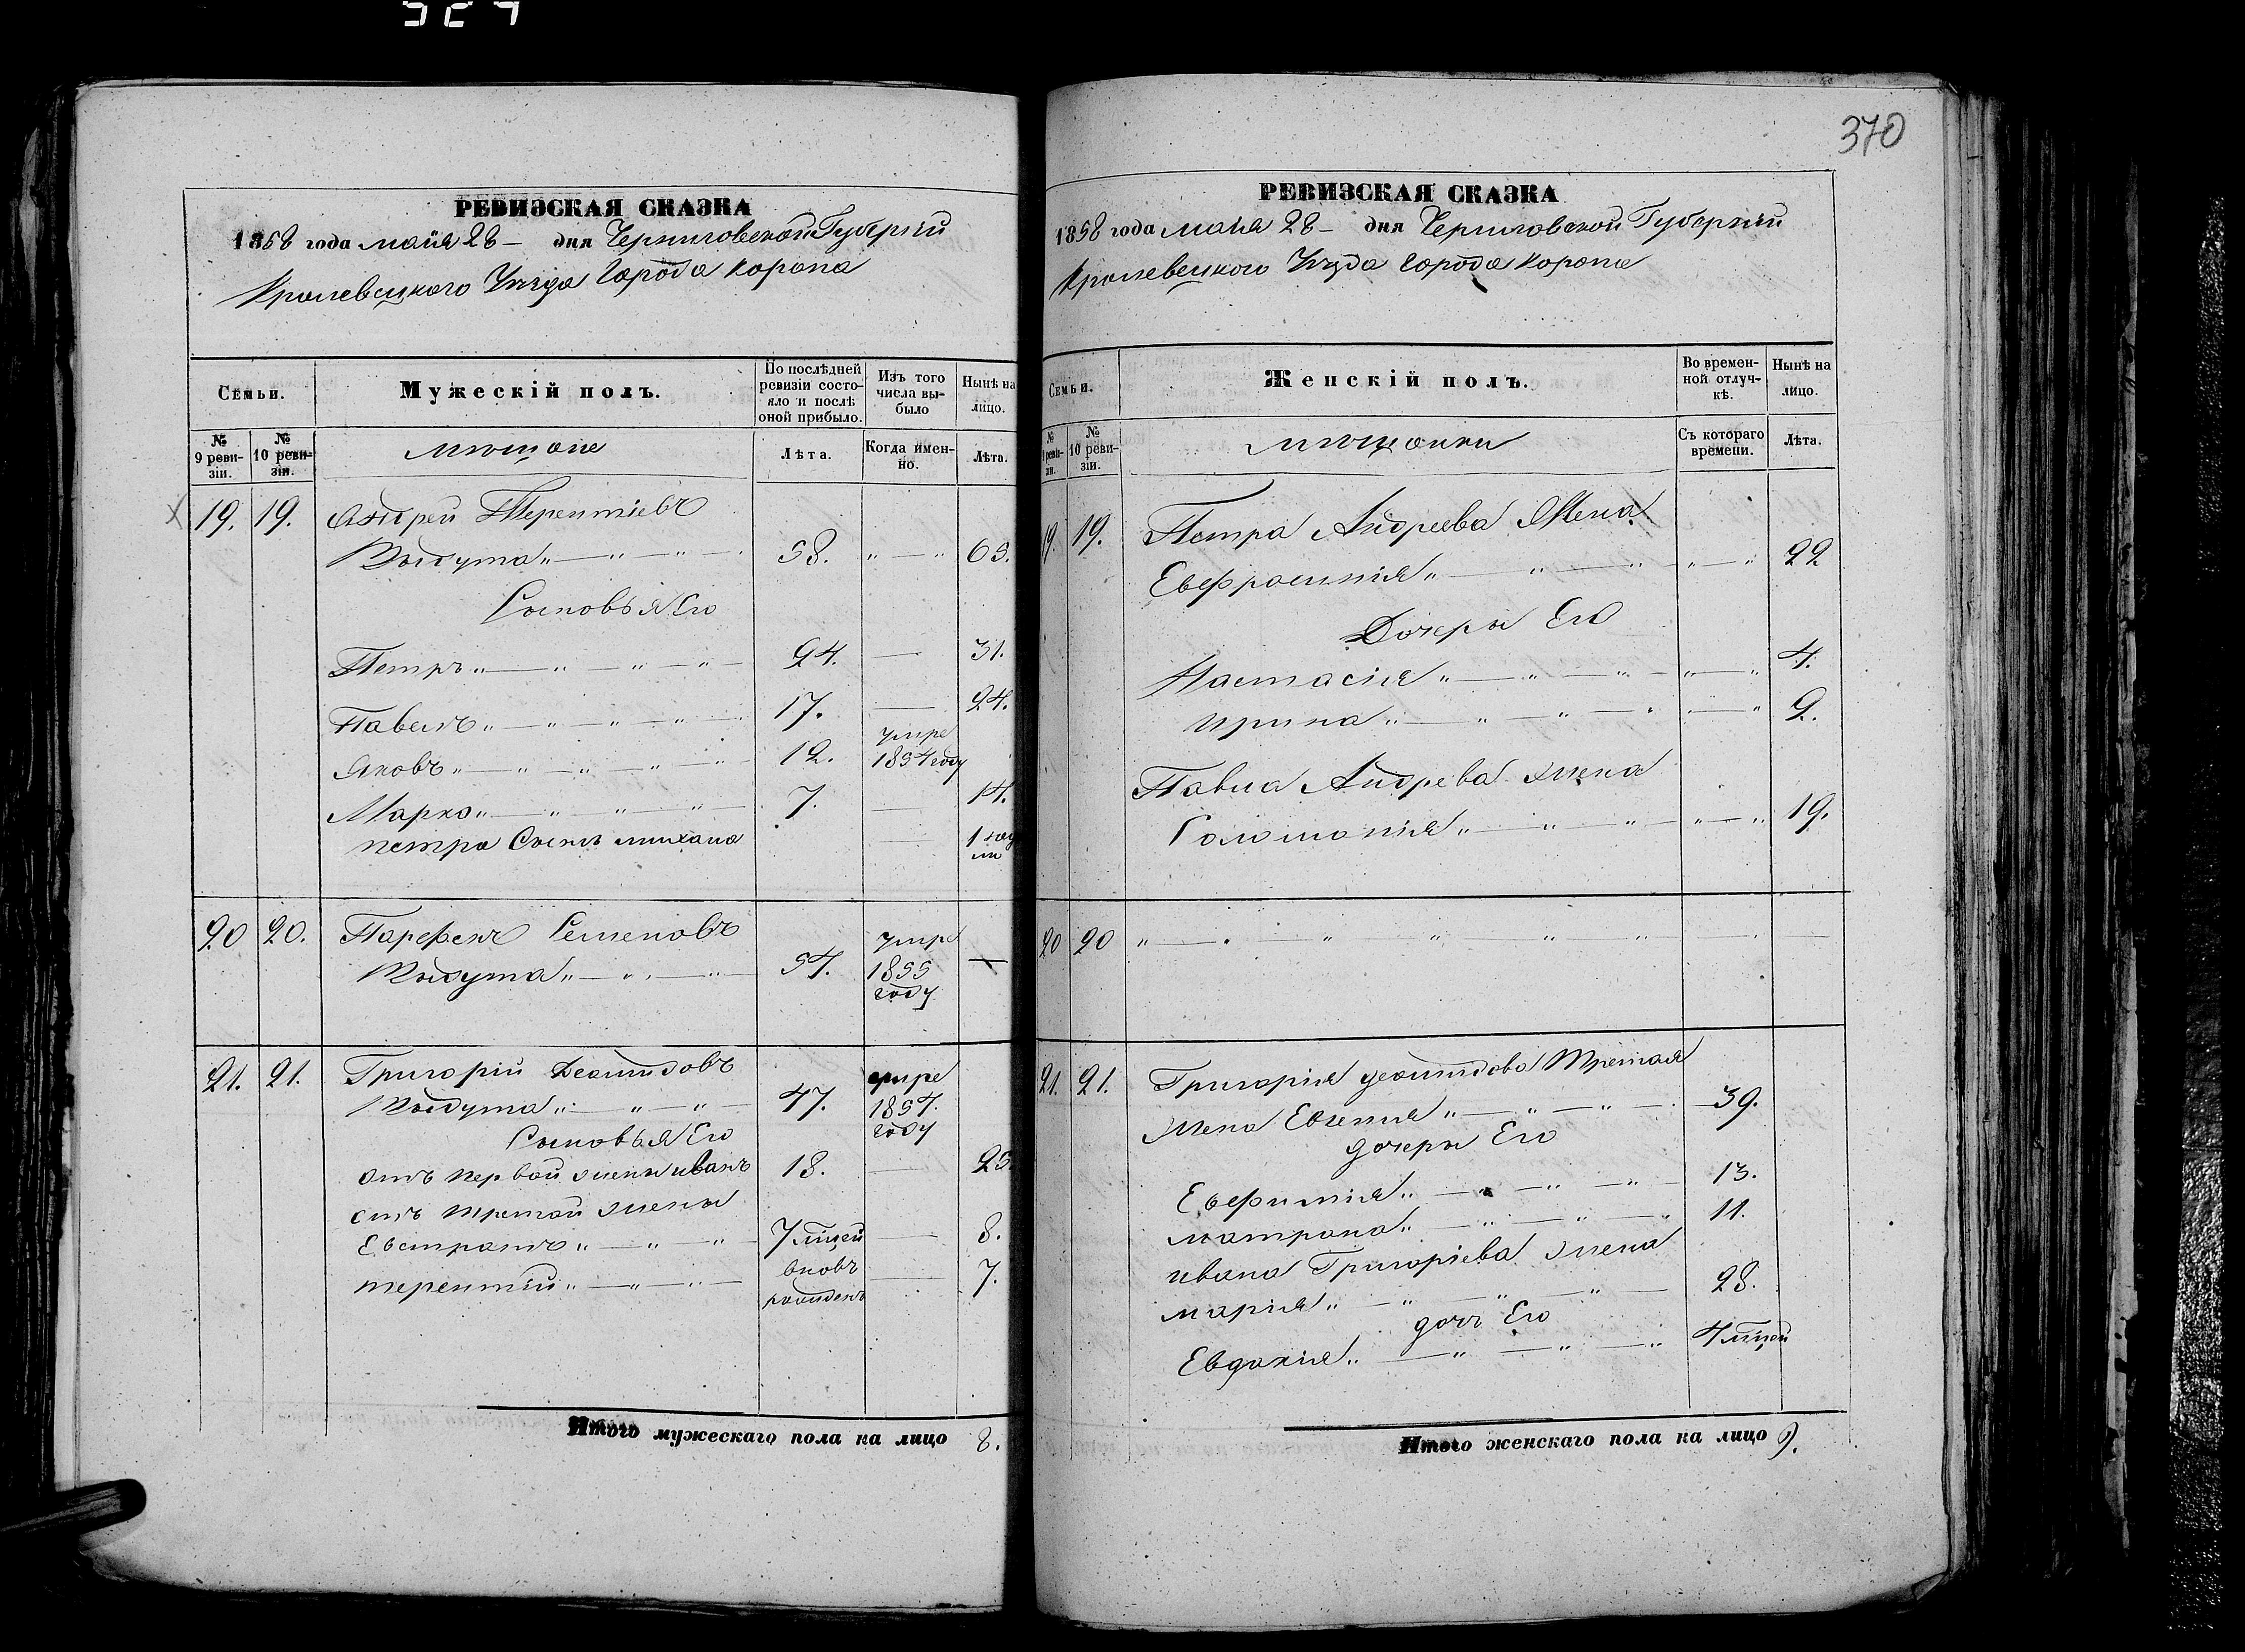 370
РЕВИЗСКАЯ СКАЗКА
1858 года мая 28 – дня Черниговской Губерніи
Кролевецкого Уѣзда Города Коропа
Семьи.
Мужескій полъ.
По послѣдней ревизіи состояло и послѣ оной прибыло.
Изъ того числа выбыло
Нынѣ на лицо.
№ 9 ревизіи.
№ 10 ревизіи.
мѣщане
Лѣта.
Когда именно.
Лѣта.
19. 19. Андрей Терентіевъ
58. 65.
Сыновья Его
Петръ 24. — 31.
Павелъ 17. — 24.
Яковъ 12. умре 1854 году
Марко 7. — 14.
петра Сынъ михаила — 1
20 20. Парфенъ Семеновъ
54. умре 1855 году —
21. 21. Григорій Демидовъ
47. умре 1857. году
Сыновья Его
отъ первой жены иванъ 18. — 25
отъ третей жены
Евстратъ 7 — 8.
терентій вновь рожденъ — 7.
Итого мужескаго пола на лицо 8.
РЕВИЗСКАЯ СКАЗКА
1858 года мая 28 – дня Черниговской Губерніи
Кролевецкого Уѣзда города Коропа
Семьи.
Женскій полъ.
Во временной отлучкѣ.
Нынѣ на лицо.
№ 9 ревизіи.
№ 10 ревизіи.
мѣщанки
Съ котораго времени.
Лѣта.
19. 19. Петра Андреева Жена
Евфросинія 22
Дочери Его
Настасія 4.
ирина 2.
Павла Андрева жена
Соломонія 19.
20 20
21. 21. Григорія демидова третая
жена Евгенія 39.
дочери Его
Евфимія 13.
матрона 11.
ивана Григоріева жена
марія 28.
дочь Его
Евдокія 4
Итого женскаго пола на лицо 9.